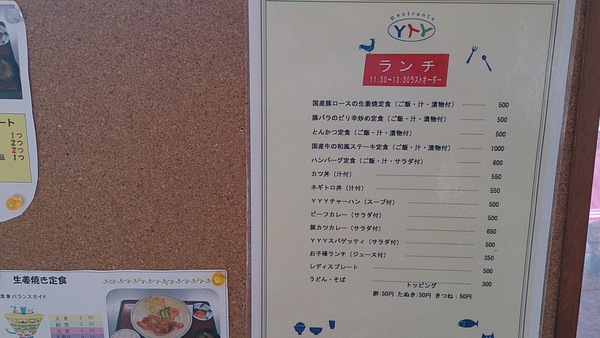 Restrante
YトY
ランチ
11:30~13:30ラストオーダー
国産豚ロースの生姜焼定食(ご飯・汁・漬物付) 500
豚バラのピリ辛炒め定食(ご飯・汁・漬物付) 500
とんかつ定食(ご飯・汁・漬物付) 500
国産牛の和風ステーキ定食(ご飯・汁・漬物付) 1000
ハンバーグ定食(ご飯・汁・サラダ付) 600
カツ丼(汁付) 550
ネギトロ丼(汁付) 550
YYYチャーハン(スープ付) 500
ビーフカレー(サラダ付) 500
豚カツカレー(サラダ付) 650
YYYスパゲッティ(サラダ付) 500
お子様ランチ(ジュース付) 350
レディスプレート 500
うどん・そば 300
トッピング
卵:50円 たぬき:50円 きつね:50円
ート
1つ
2つ
2つ
品 1つ
生姜焼き定食
食事バランスガイド
主食 2 SV
副菜
主菜